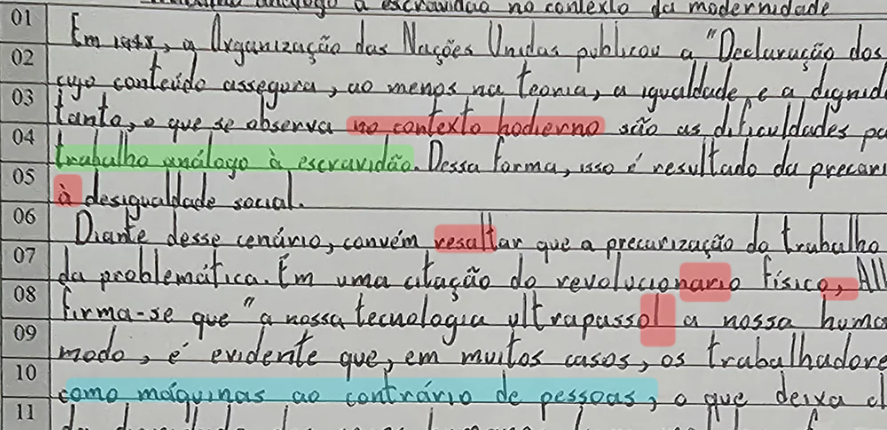 análogo à escravidão no contexto da modernidade
01 Em 1948, a Organização das Nações Unidas publicou a "Declaração dos
02 cujo conteúdo assegura, ao menos na teoria, a igualdade e a dignid
03 tanto, o que se observa no contexto hodierno são as dificuldades pa
04 trabalho análogo à escravidão. Dessa forma, isso é resultado da precari
05 à desigualdade social.
06 Diante desse cenário, convém resaltar que a precarização do trabalho
07 da problemática. Em uma citação do revolucionario físico, Al
08 firma-se que "a nossa tecnologia ultrapassol a nossa huma
09 modo, é evidente que, em muitos casos, os trabalhadore
10 como máquinas ao contrário de pessoas, o que deixa cl
11